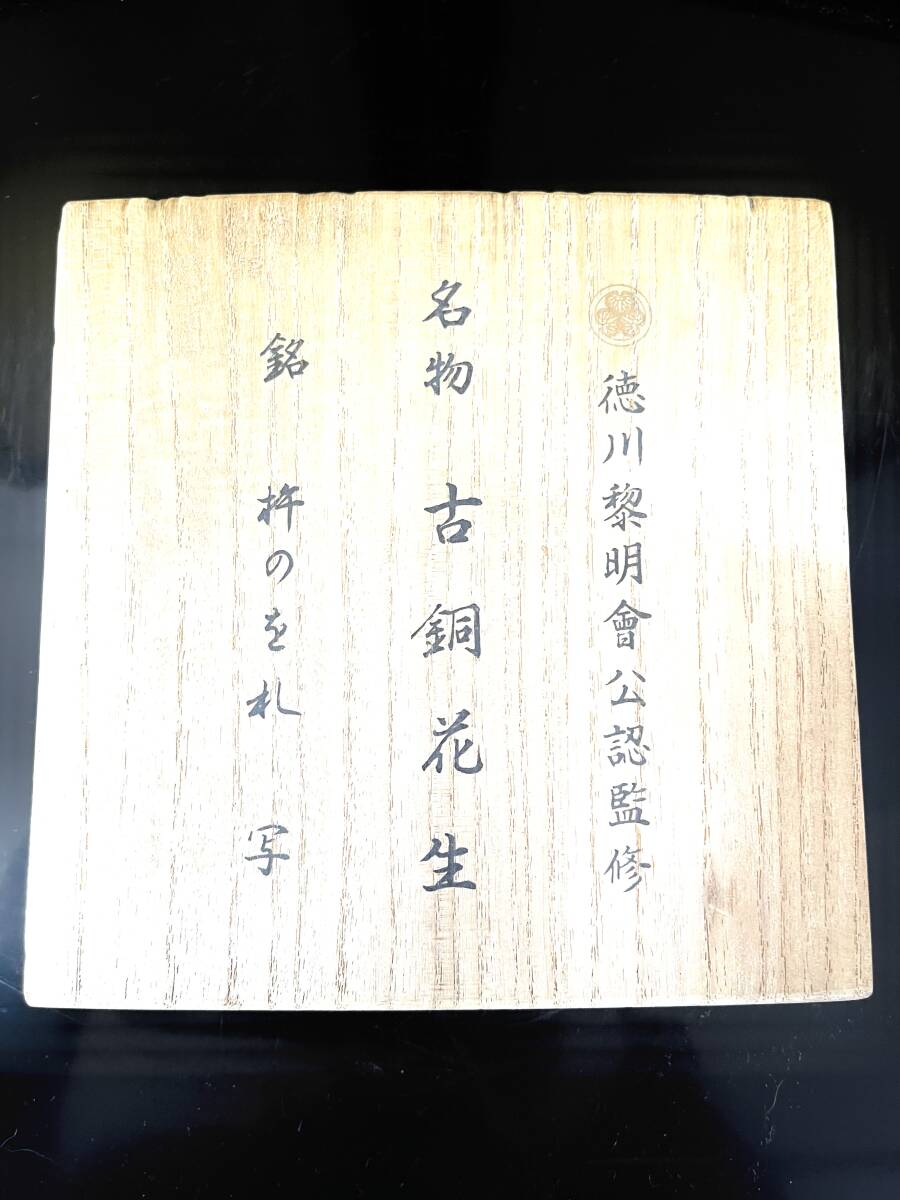 徳川黎明會公認監修
名物 古銅花生
銘 杵のをれ 写